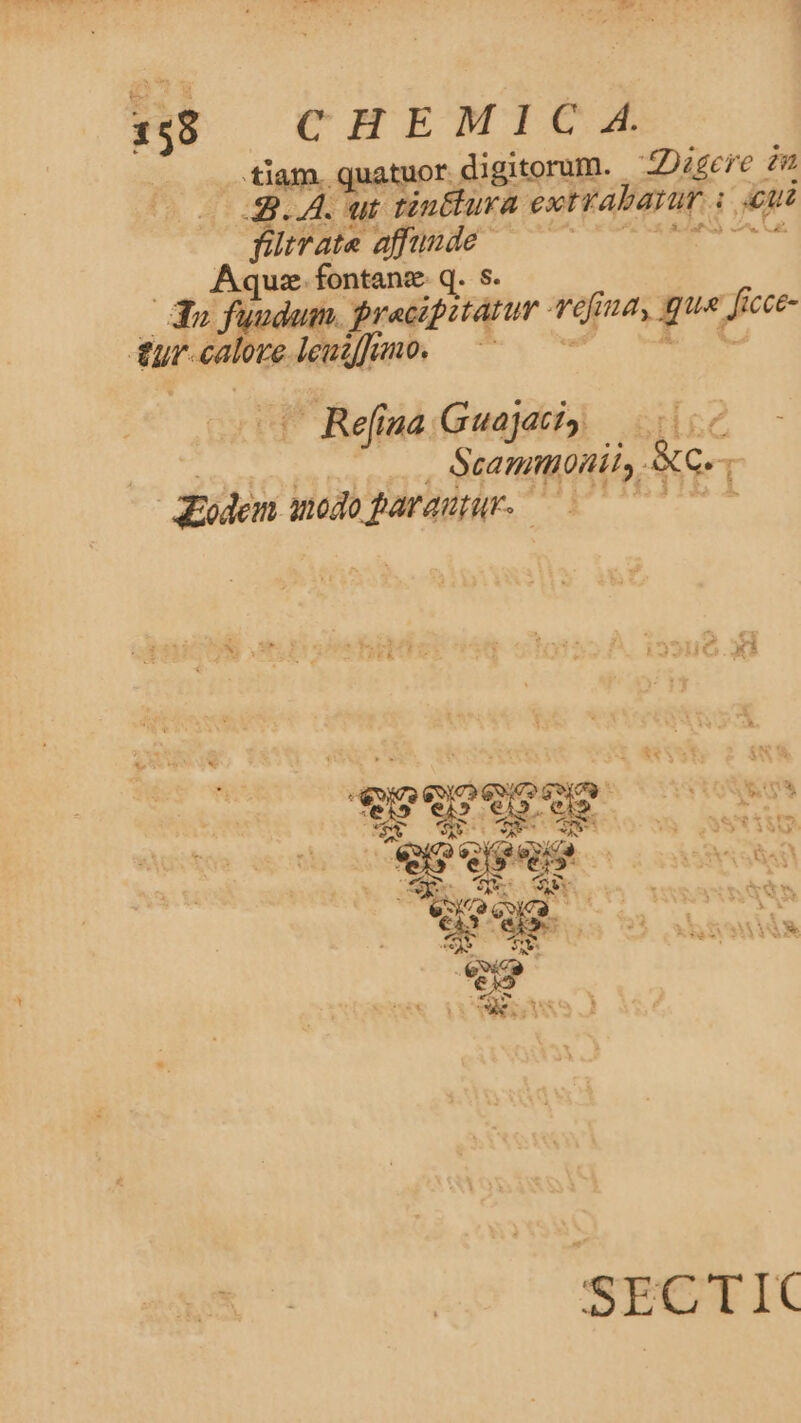 158 CHEMICA.
tiam quatuor digitorum. Digere in
B. A. ut tinctura extrahatur; cui
filtratæ affunde
Aquæ fontanæ q. s.
In fundum præcipitatur resina, quæ ſicce-
tur calore leniſſimo.
Reſina Guajaci,
Scammonii, &c.
Eodem modo parantur.
SECTIO